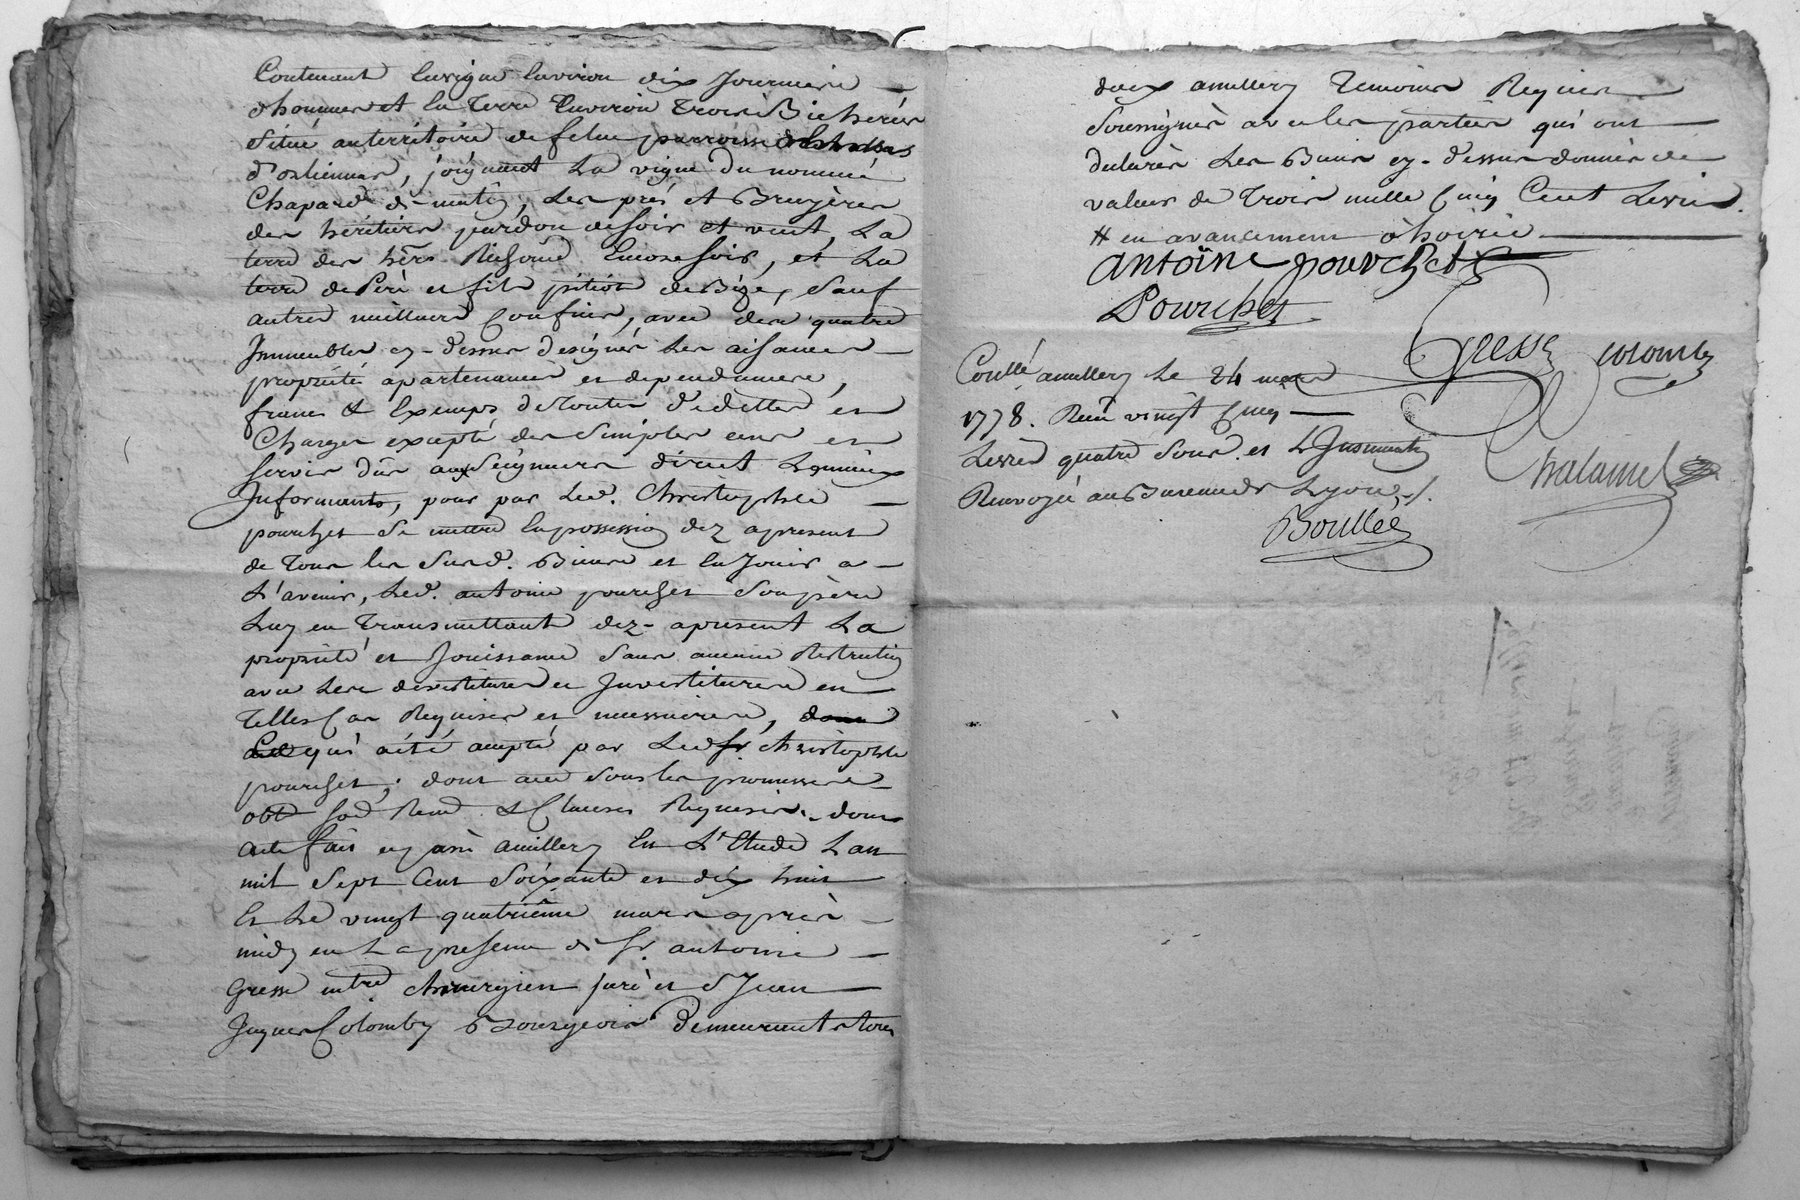 Contenant la vigne Environ dix Journeés
d'hommes et la Terre Environ Trois Bicheréés
Situé au territoire de felue parroisse
d'orlienas, joignant La vigne du nommé
Chapard di matin, Les prés et Bruyères
des héritiers jourdon de soir et vent, La
terre des hers. Encore soir, et La
terre de Péré et fils pition de Bize, Sauf
autres meilleurs Confins, avec desd quatre
Immeubles cy-dessus designés Les aisances
proprieté apartenances et dependances,
francs et Exempts de Toutes d'édettes et
Charges excepté des Simples cens et
servis dûs aux Seigneurs directs
Informants, pour par Led. Christophle
pourchet Se mettre En possession dez apresent
de Tous les Susd. Biens et En Jouir a
L'avenir, Led. antoine pourchet Son père
Luy en Transmettant dez-apresent La
proprieté et Jouissance Sans aucune Restriction
avec Les devestitures et Investitures en
Telles Cas Requises et necessaires, donc
qui aété accepté par Led sr christophle
pourchet; dont acte Sous les promesses
obt Sod Renc & Clauses Requises. dont
acte fait et passé amillery En L'Etude Lan
mil Sept Cent Soixante et dix huit
Et Le vingt quatrième mars après
midy en La presence de Sr. antoine
Gresse mtre chirurgien juré et S Jean
Jaques Colomby Bourgeois demeurants tous
deux amillery Temoins Requis
Soussignés avec les parties qui ont
declarés Les Biens cy-dessus donnés de
valeur de Trois mille Cinq Cent Livres.
# en avancement d'hoirie
antoine pourchet
Pourchet
Gresse colomby
Conllé amillery Le 24 mars
1778. Reçu vingt Cinq
Livres quatre Sous. et L'Insinuation
Renvoyée au Bureau de Lyon ./.
Chalamel
Boullée